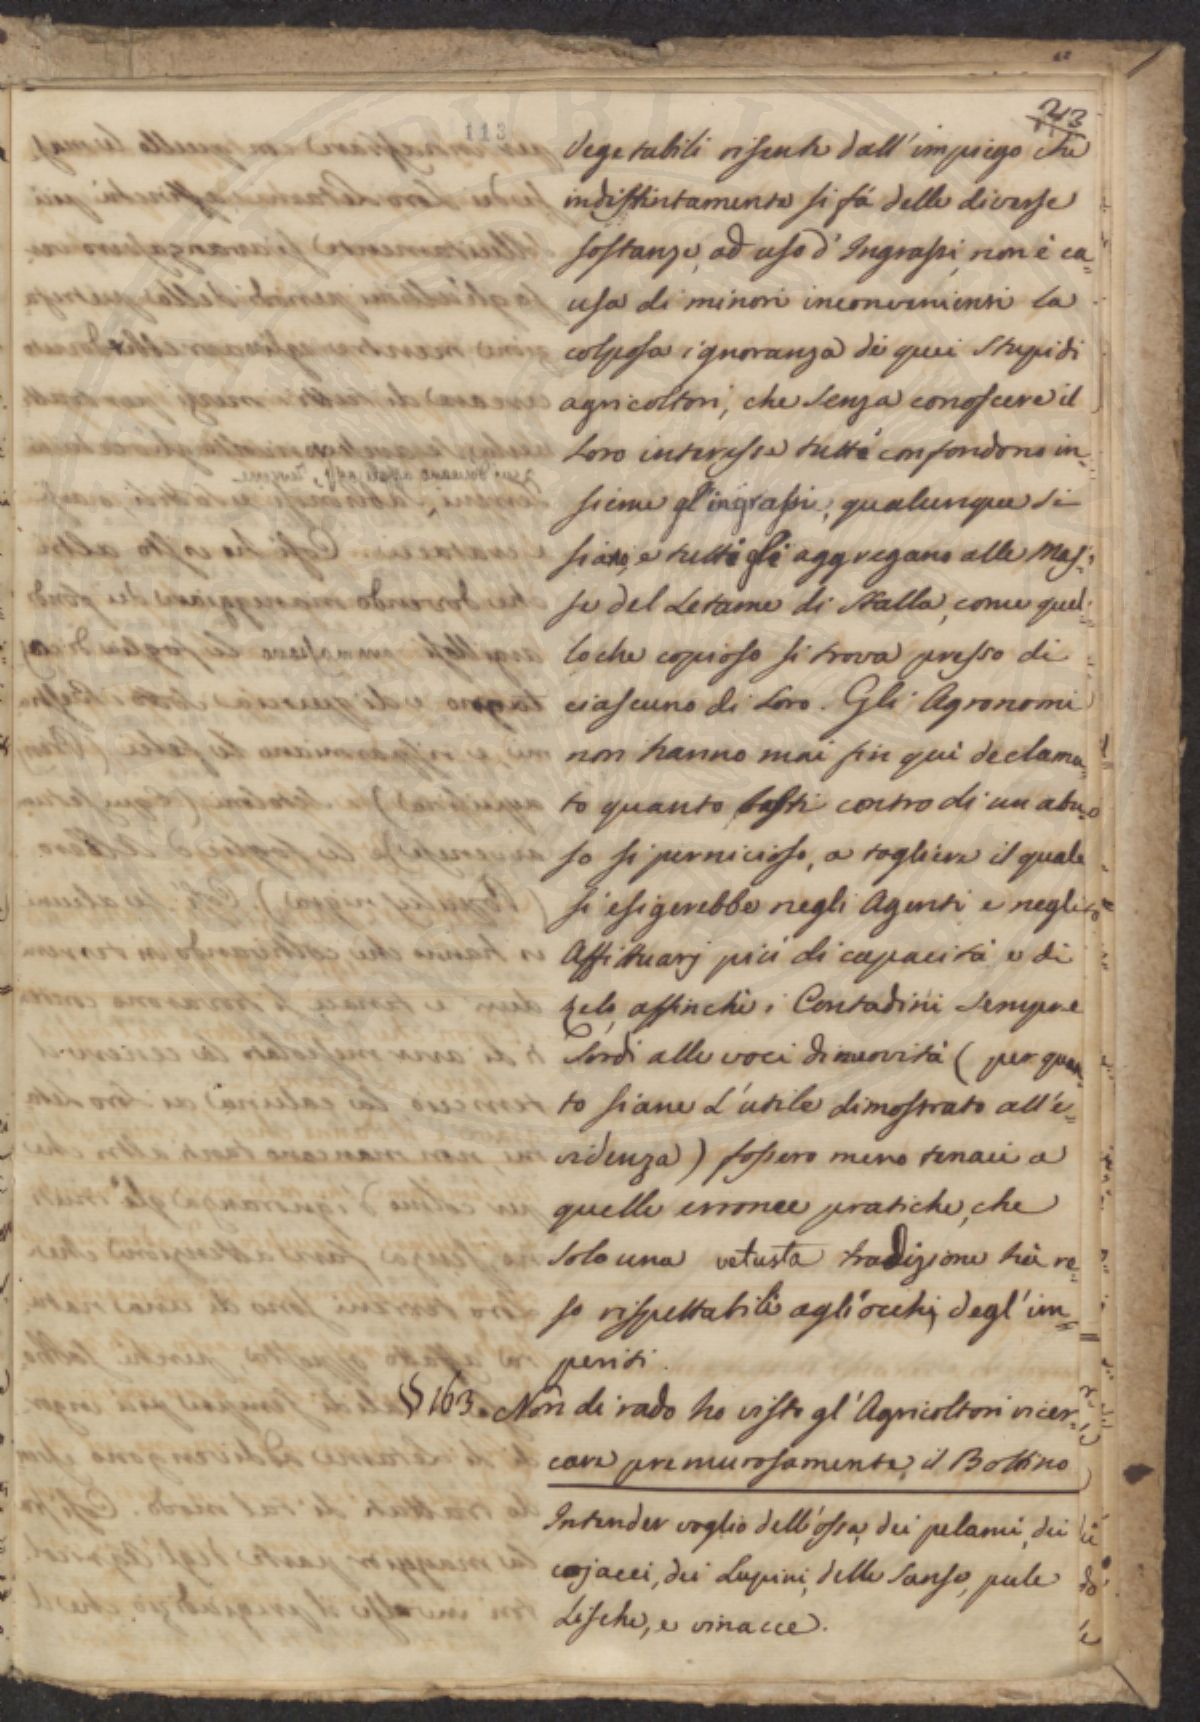 213
113
Vegetabili risente dall'impiego che
indistintamente si fà delle diverse
sostanze, ad uso d'Ingrassi, non è ca=
usa di minori inconvenienti la
colposa ignoranza di quei stupidi
agricoltori, che senza conoscere il
loro interesse tutti confondono in=
sieme gl'ingrassi, qualunque si
siano, e tutti gli aggregano alle Mas=
se del Letame di Stalla, come quel=
lo che copioso si trova presso di
ciascuno di loro. Gli Agronomi
non hanno mai fin quì declama=
to quanto basti contro di un abu=
so si pernicioso, a togliere il quale
si esigerebbe negli Agenti e negli
Affittuarj più di capacità e di
zelo, affinchè i Contadini sempre
sordi alle voci di novità (per quan=
to siane l'utile dimostrato all'e=
videnza) fossero meno tenaci a
quelle erronee pratiche, che
solo una vetusta tradizione hà re=
so rispettabili agli occhj degl'im=
periti.
§ 163. Non di rado ho visto gl'Agricoltori ricer=
care premurosamente, il Bottino
Intender voglio dell'ossa, dei pelami, dei
cojacci, dei Lupini, delle Sanse, pule
Lische, e vinacce.